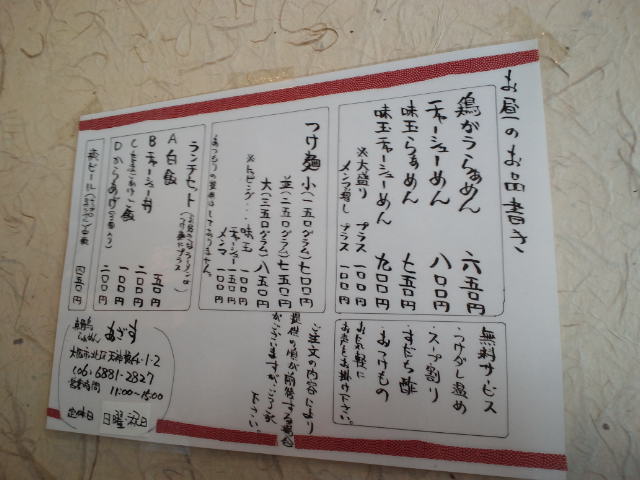 お昼のお品書き
鶏がららぁめん 六五〇円
チャーシューめん 八〇〇円
味玉らぁめん 七五〇円
味玉チャーシューめん 九〇〇円
※大盛り プラス 一〇〇円
メンマ増し プラス 一〇〇円
つけ麺 小(一五〇グラム)七〇〇円
並(二五〇グラム)七五〇円
大(三五〇グラム)八五〇円
※トッピング・・・味玉 一〇〇円
チャーシュー 一五〇円
メンマ 一〇〇円
ランチセット
A 白飯 五〇円
B チャーシュー丼 二〇〇円
C たまごかけご飯 一〇〇円
D からあげ 二〇〇円
四五〇円
無料サービス
・つけだし温め
・スープ割り
・すだち酢
・おつけもの
お気軽に
お声をお掛け下さい。
ご注文の内容により
提供の順が前後する場合
がございますがご了承
下さい。
らぁめん
大阪市北区天神橋4-1-2
(06-6881-2827
営業時間 11:00~15:00
定休日 日曜・祝日